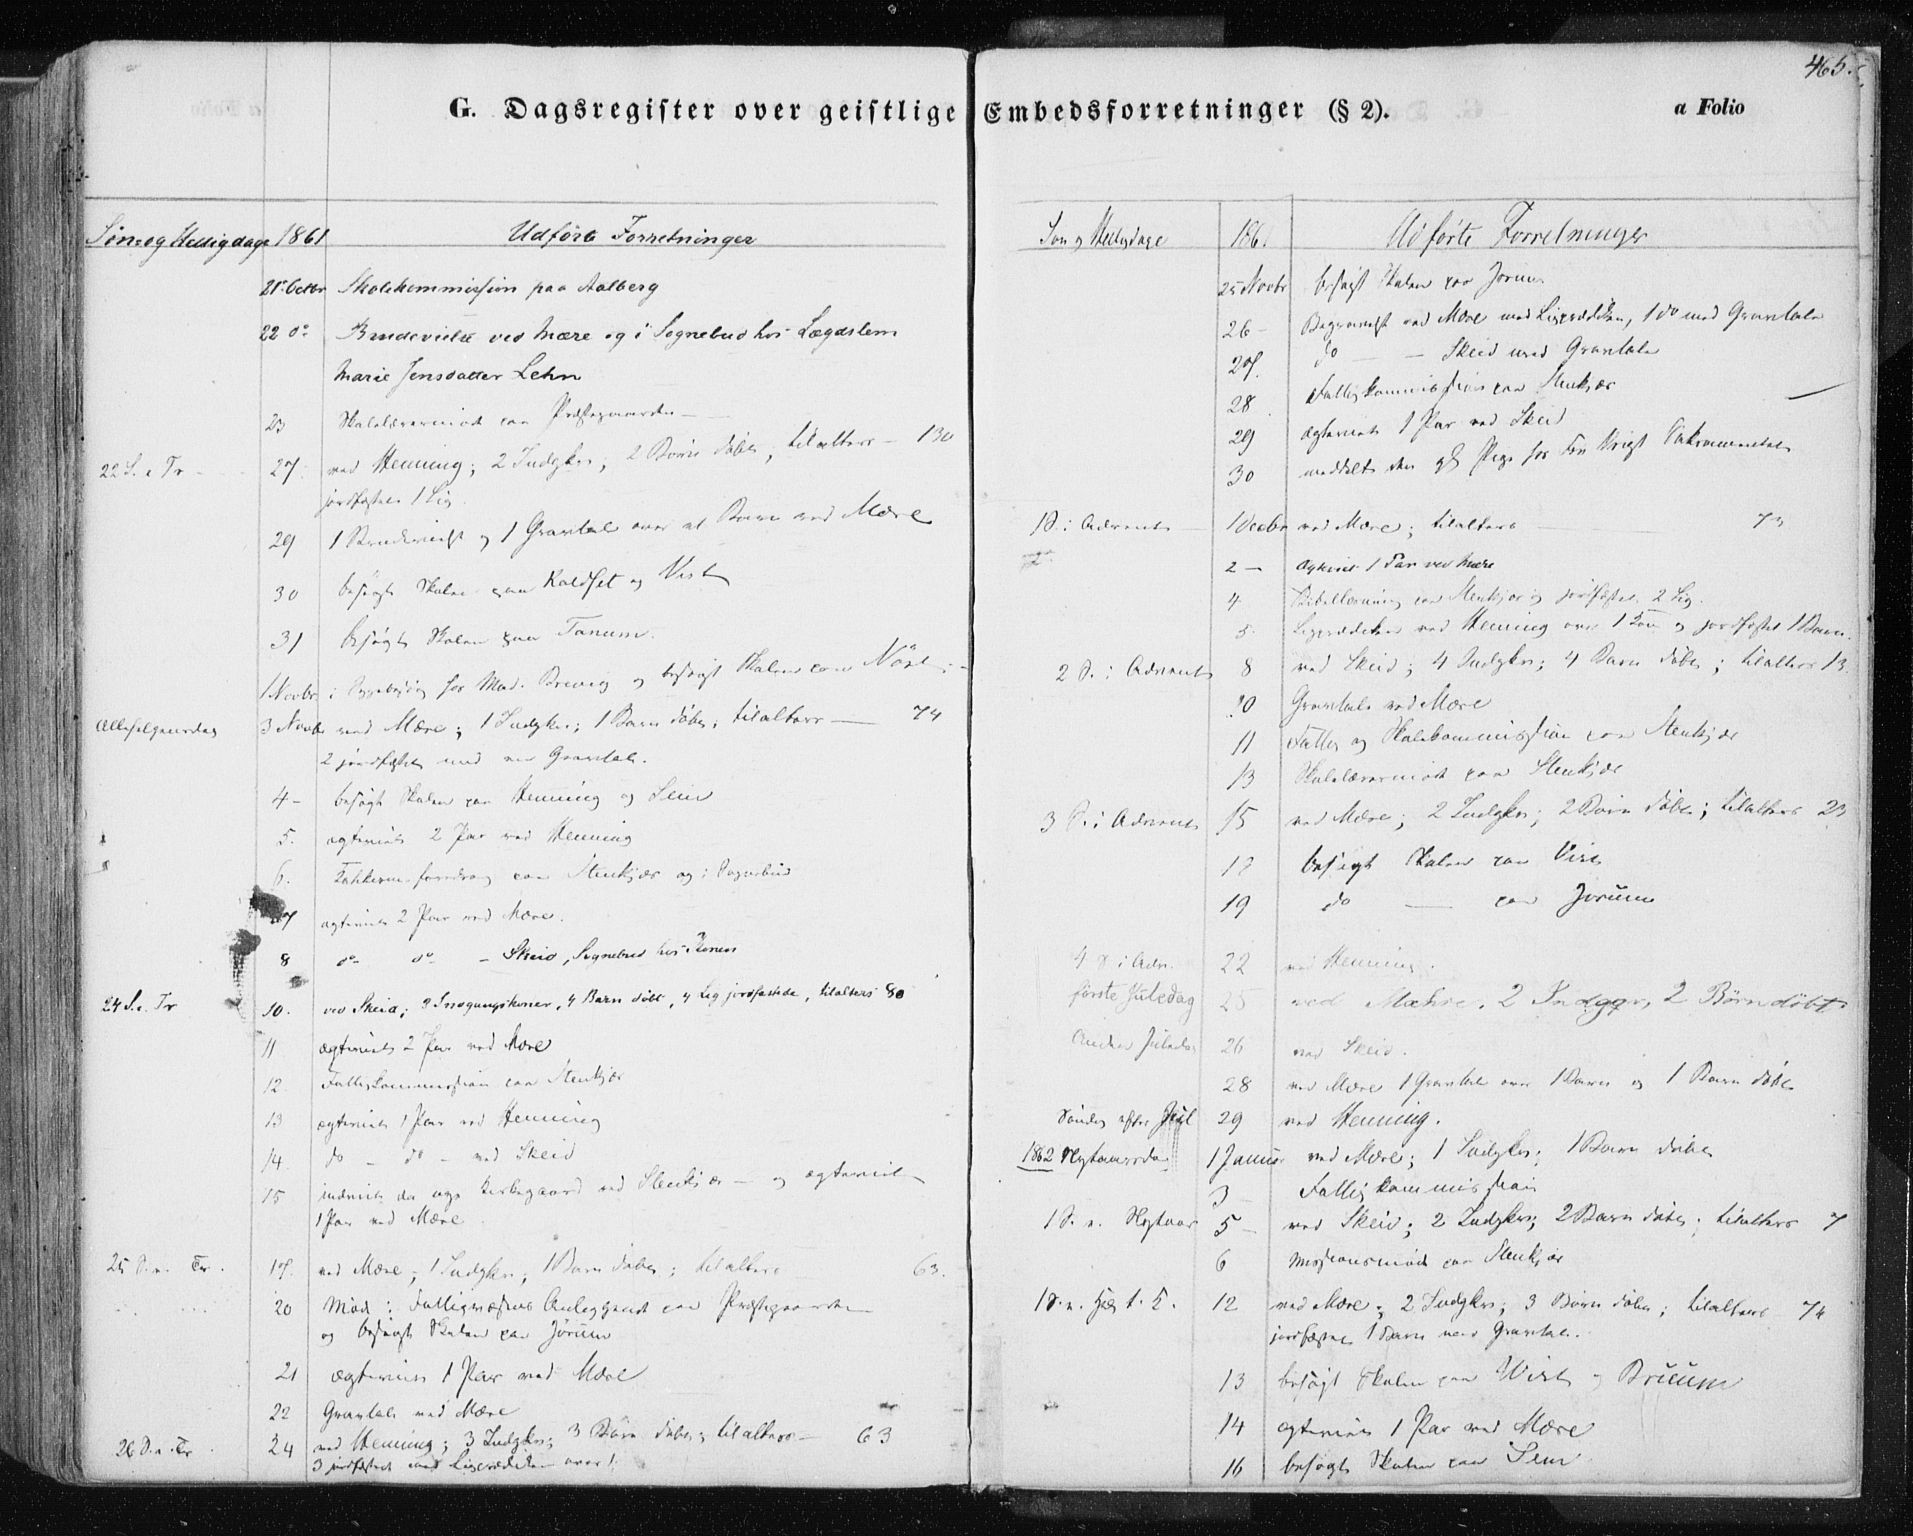 465.
G. Dagsregister over geistlige Embedsforretninger (§ 2). a Folio
Søn- og Helligdage 1861 Udførte Forretninger
21 Octbr Skolekommission paa Aalberg
22 do Brudevielse ved Mære og i Sognebud hos Lægdslem
Marie Jensdatter Lehn
23 Skolelærermøde paa Præstegaarden
22 S. e Tr 27 ved Henning; 2 Indgkr; 2 Børn døbte, til alters 130
jordfæstet 1 Lig
29 1 Brudevielse og 1 Gravtale over et Barn ved Mære
30 besøgt Skolen paa og Vist
31 besøgt Skolen paa Tanum.
1 Novbr i for Mad. Brevig og besøgt Skolen paa
Allehelgensdag 3 Novbr ved Mære; 1 Indgkr; 1 Barn døbt; til alters 74
2 jordfæstet med en Gravtale.
4 - besøgt Skolen paa Henning og Sem
5. ægteviet 2 Par ved Henning
6. paa Stenkjær og i Sognebud
7 ægteviet 2 Par ved Mære.
8 do do - Skeid, Sognebud hos Konen
24 S. e. Tr 10. ved Skeid; 3 Indgangskoner, 4 Barn døbt, 4 Lig jordfæstede, til alters 80
11 ægteviet 2 Par ved Mære
12. Fattigkommission paa Stenkjær
13 ægteviet 1 Par ved Henning
14. do - do - ved Skeid
15 indviet Kirkegaard ved Stenkjær - og ægteviet
1 Par ved Mære
25 S. e. Tr. 17. ved Mære; 1 Indgkr; 1 Barn døbt; til alters 63.
20 Møde i Fattigvæsens Anliggende paa Præstegaarden
og besøgt Skolen paa Jørum
21 ægteviet 1 Par ved Mære
22 Gravtale ved Mære
26 S. e. Tr. 24 ved Henning; 3 Indgkr; 3 Børn døbt; til alters - 63
3 jordfæstet med Ligprædiken over 1
Søn og Helligdage 1861 Udførte Forretninger
25 Novbr besøgt Skolen paa Jørum
26 - Begravelse ved Mære med Ligprædiken, 1 do med Gravtale
27. do - - Skeid med Gravtale
28 Fattigkommission paa Stenkjær
29 ægteviet 1 Par ved Skeid
30 meddelt den Sakramentet
1 S. i Advent 1 Decbr ved Mære; til alters 73
2 - ægteviet 1 Par ved Mære
4 paa Stenkjær og jordfæstet 2 Lig.
5. Ligprædiken ved Henning over 1 og jordfæstet 1 Barn.
2 S. i Advent 8 ved Skeid; 4 Indgkr; 4 Barn døbt; til alters 13.
10 Gravtale ved Mære
11 Fattig og Skolekommission paa Stenkjær
13 Skolelærermøde paa Stenkjær
3 S. i Advent 15 ved Mære; 2 Indgkr; 2 Børn døbt; til alters 23
17 besøgt Skolen paa Vist
19 do - paa Jørum
4 S i Adv. 22 ved Henning.
første Juledag 25 ved Mæhre. 2 Indggr, 2 Børn døbt
Anden Juledag 26 ved Skeid.
28 ved Mære 1 Gravtale over 1 Barn og 1 Barn døbt
Søndag efter Jul 29 ved Henning.
1862 Nytaarsdag 1 Januar ved Mære; 1 Indgkr; 1 Barn døbt
3 - Fattigkommission
1 S. e. Nytaar 5 - ved Skeid; 2 Indgkr; 2 Barn døbt; til alters 7
6 Missionsmøde paa Stenkjær
1 S. e. 12 ved Mære; 2 Indgkr; 3 Børn døbt; til alters 74
jordfæstet 1 Barn med Gravtale.
13 besøgt Skolen paa Wist og
14 ægteviet 1 Par ved Mære
16 besøgt Skolen paa Sem